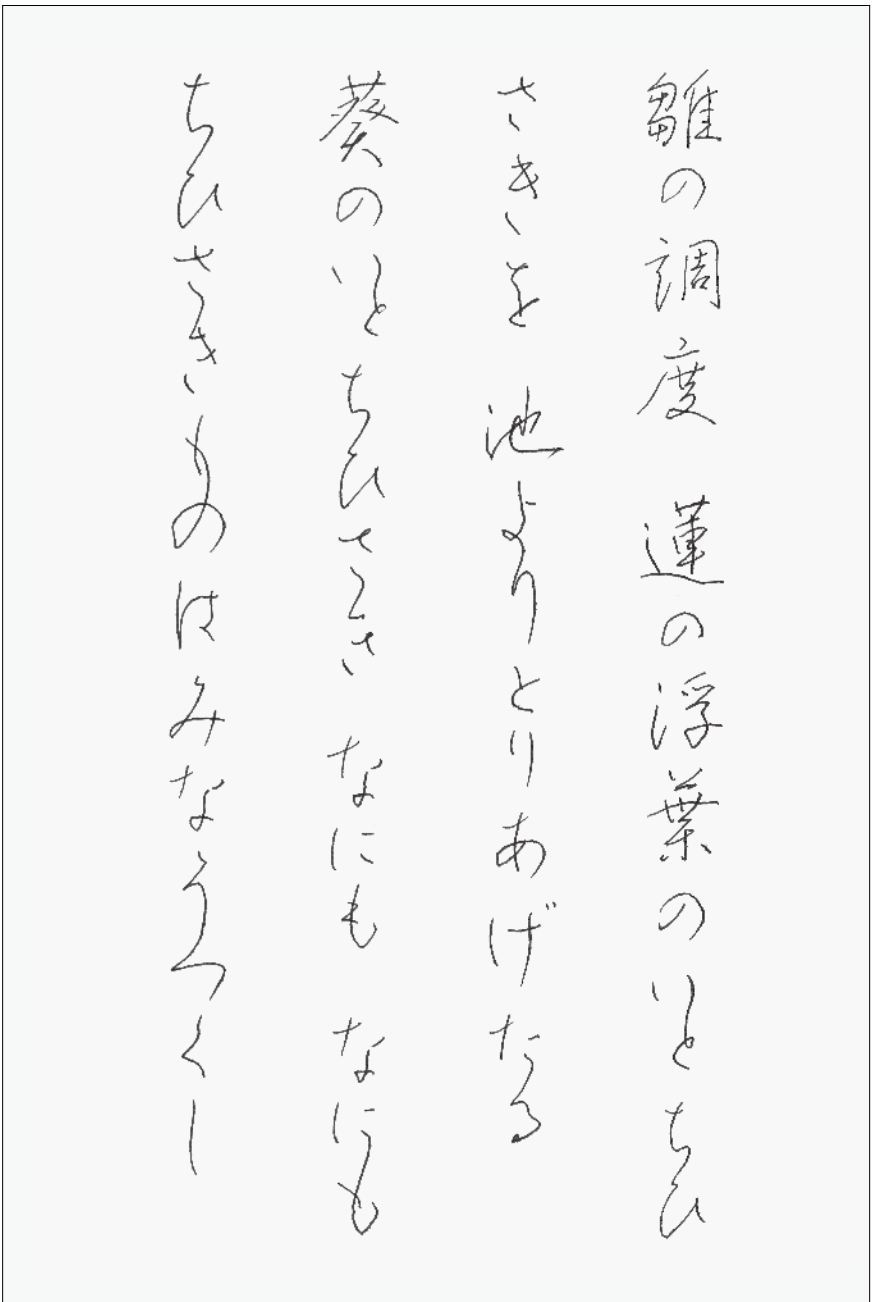 雛の調度 蓮の浮葉のいとちひ
さきを 池よりとりあげたる
葵のいとちひさき なにも なにも
ちひさきものはみなうつくし